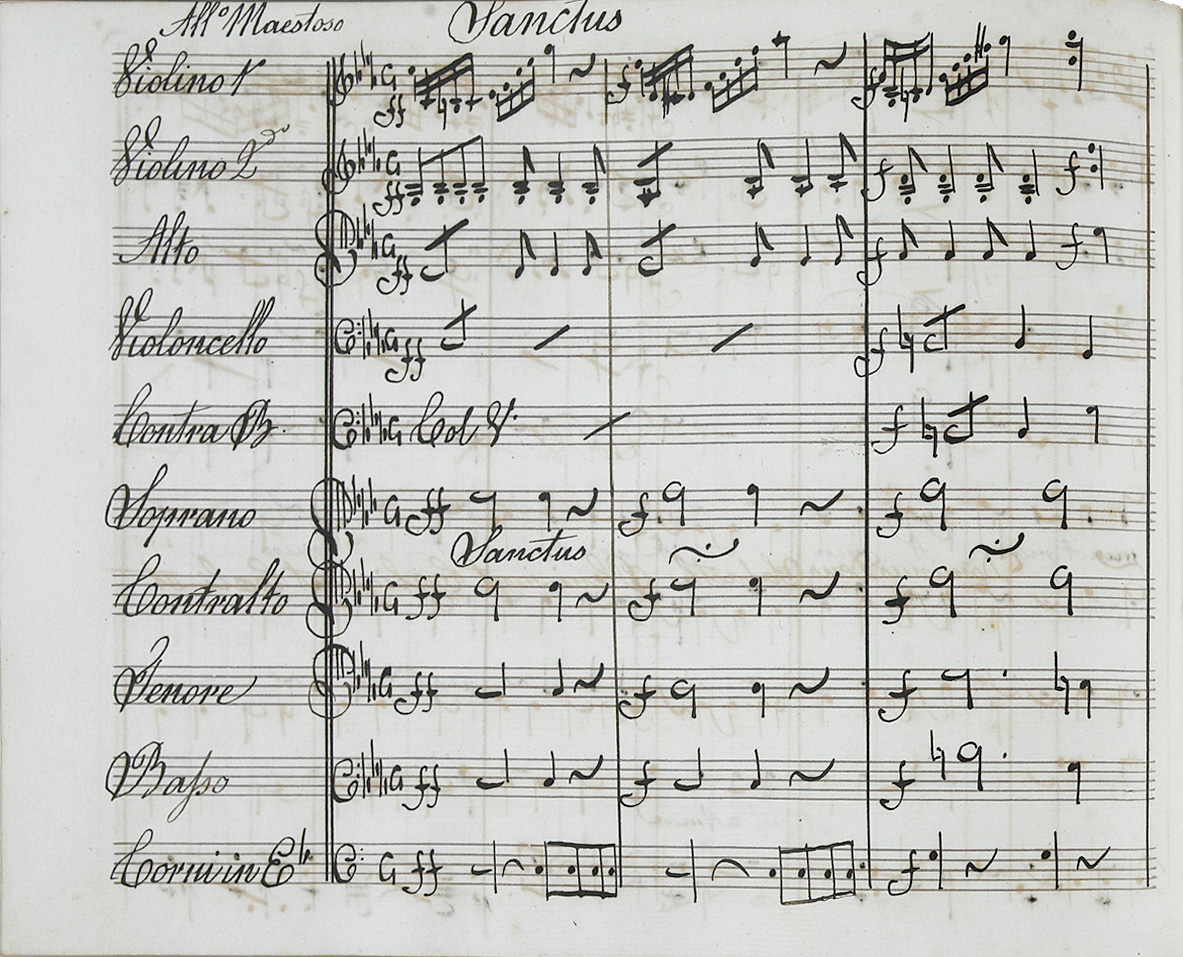 All.º Maestoso Sanctus
Violino 1º
ff f f
Violino 2do
ff f f
Alto
ff f f
Violoncello
ff f
Contra B. Col V.
f
Soprano ff f. f
Sanctus
Contralto ff f f
Tenore ff f f
Basso ff f f
Corni in E♭ ff f